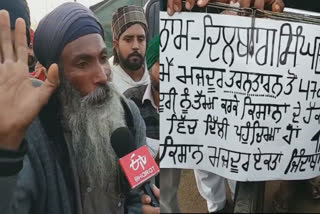 ਨਾਮ-ਦਿਲਬਾਗ ਸਿੰਘ
ਮੈਂ ਮਜ਼ਦੂਰ ਤਰਨਤਾਰਨ ਤੋਂ
ਨੂੰ ਕਰਕੇ ਕਿਸਾਨਾਂ ਦੇ ਹੱਕ
ਵਿੱਚ ਦਿੱਲੀ ਪਹੁੰਚਿਆ ਹਾਂ
ਕਿਸਾਨ ਮਜ਼ਦੂਰ ਏਕਤਾ ਜਿੰਦਾਬਾਦ
ETV
BHARAT